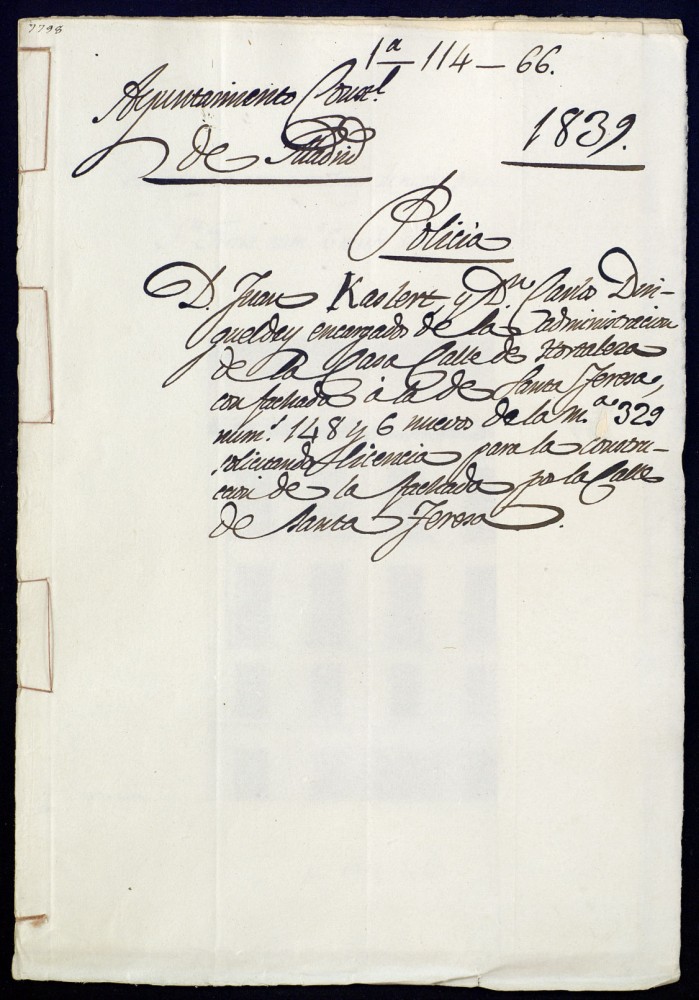 7798
1ª 114 – 66.
Ayuntamiento Const.l
de Madrid
1839.
Policia
D. Juan Kasbert, y D.n Carlos Din-
gueldey encargados de la administracion
de la Casa Calle de Hortaleza
con fachada á la de Santa Teresa,
num.s 148 y 6 nuevos de la m.a 329
solicitando licencia para la constru-
ccion de la fachada por la Calle
de Santa Teresa.